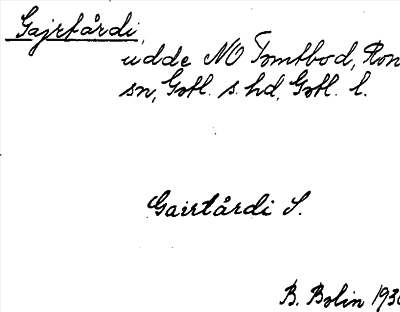 Gajrtårdi,
udde NO Tomtbod, Ron
sn, Gotl. s. hd, Gotl. l.
Gairtårdi S.
B. Bolin 193